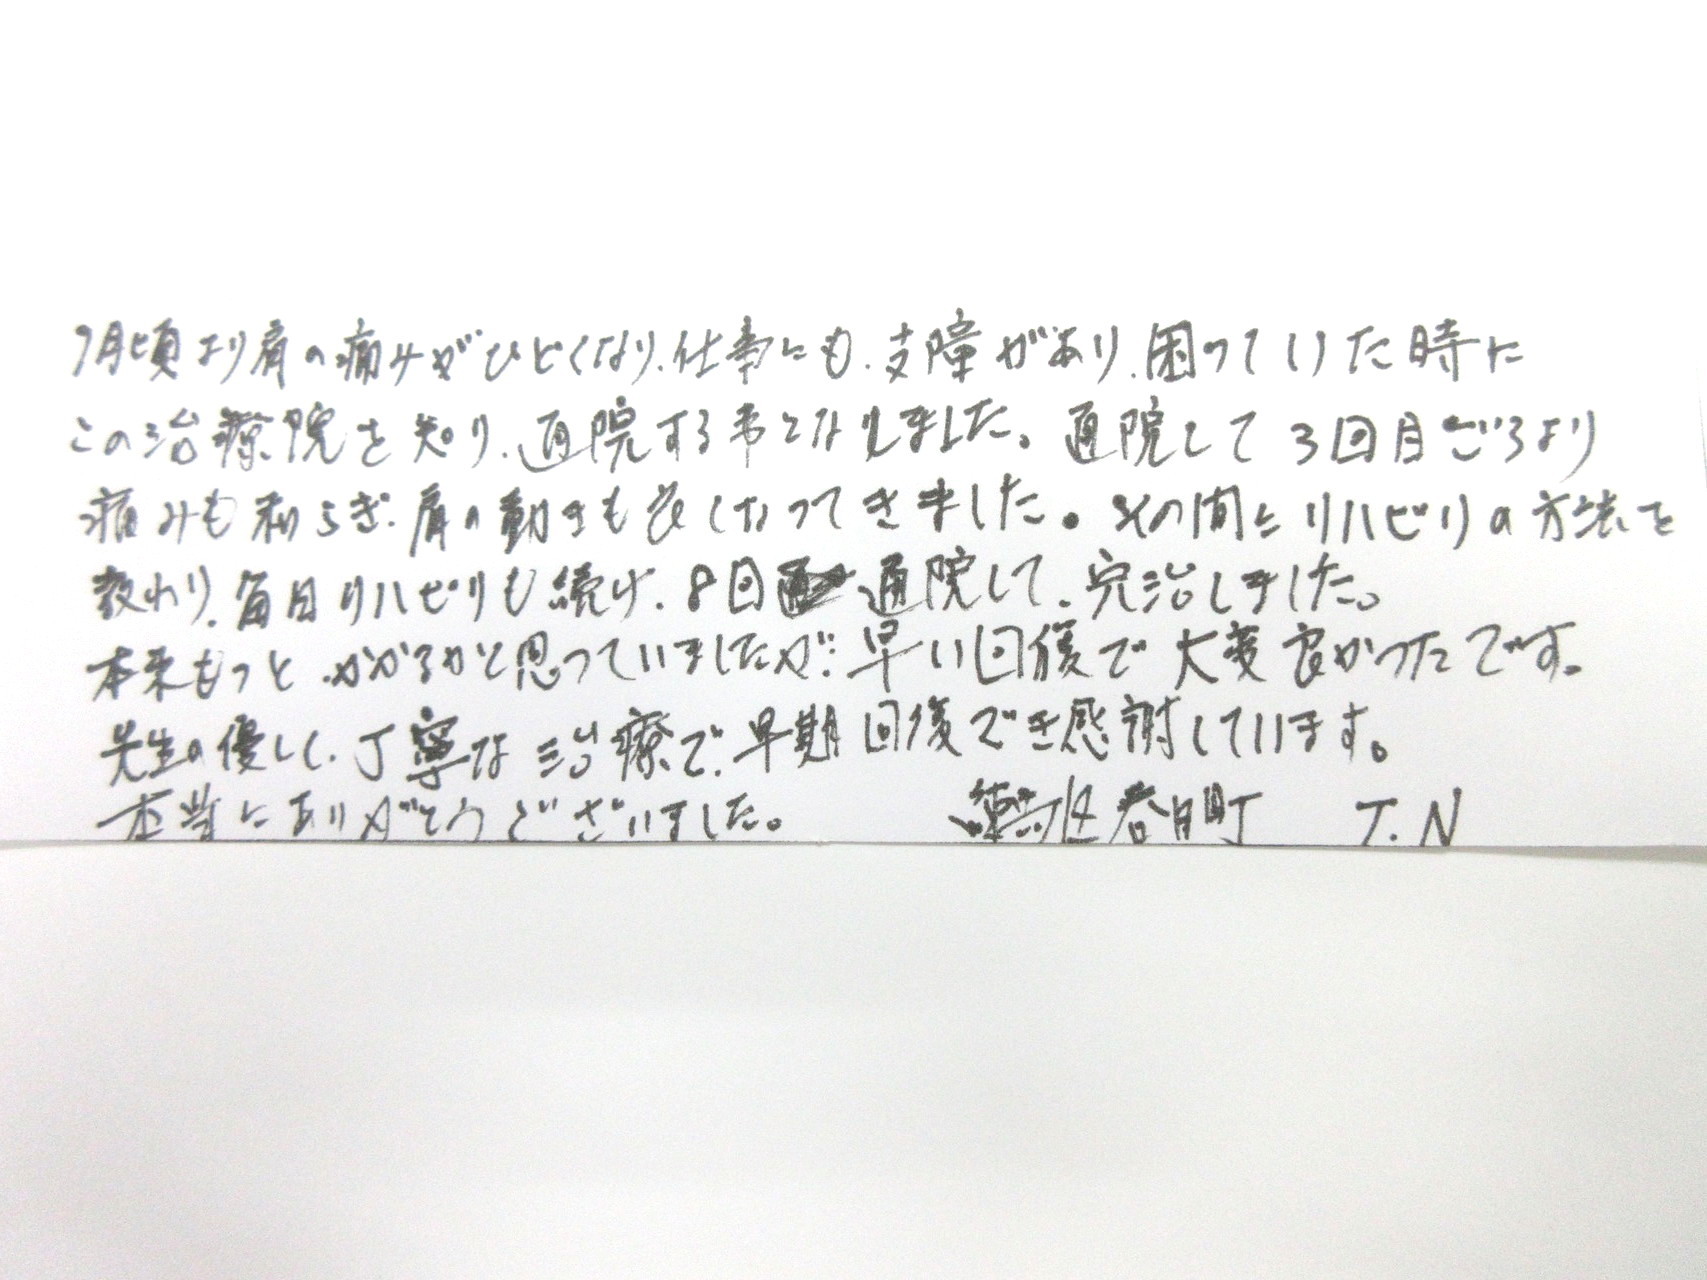 7月頃より肩の痛みがひどくなり、仕事にも、支障があり、困っていた時に
この治療院を知り、通院する事となりました。通院して3回目ごろより
痛みも和らぎ、肩の動きも良くなってきました。その間にリハビリの方法を
教わり、毎日リハビリも続け、8回通院して、完治しました。
本来もっと、かかるかと思っていましたが、早い回復で大変良かったです。
先生の優しく、丁寧な治療で、早期回復でき感謝しています。
本当にありがとうございました。 練馬区春日町 T.N